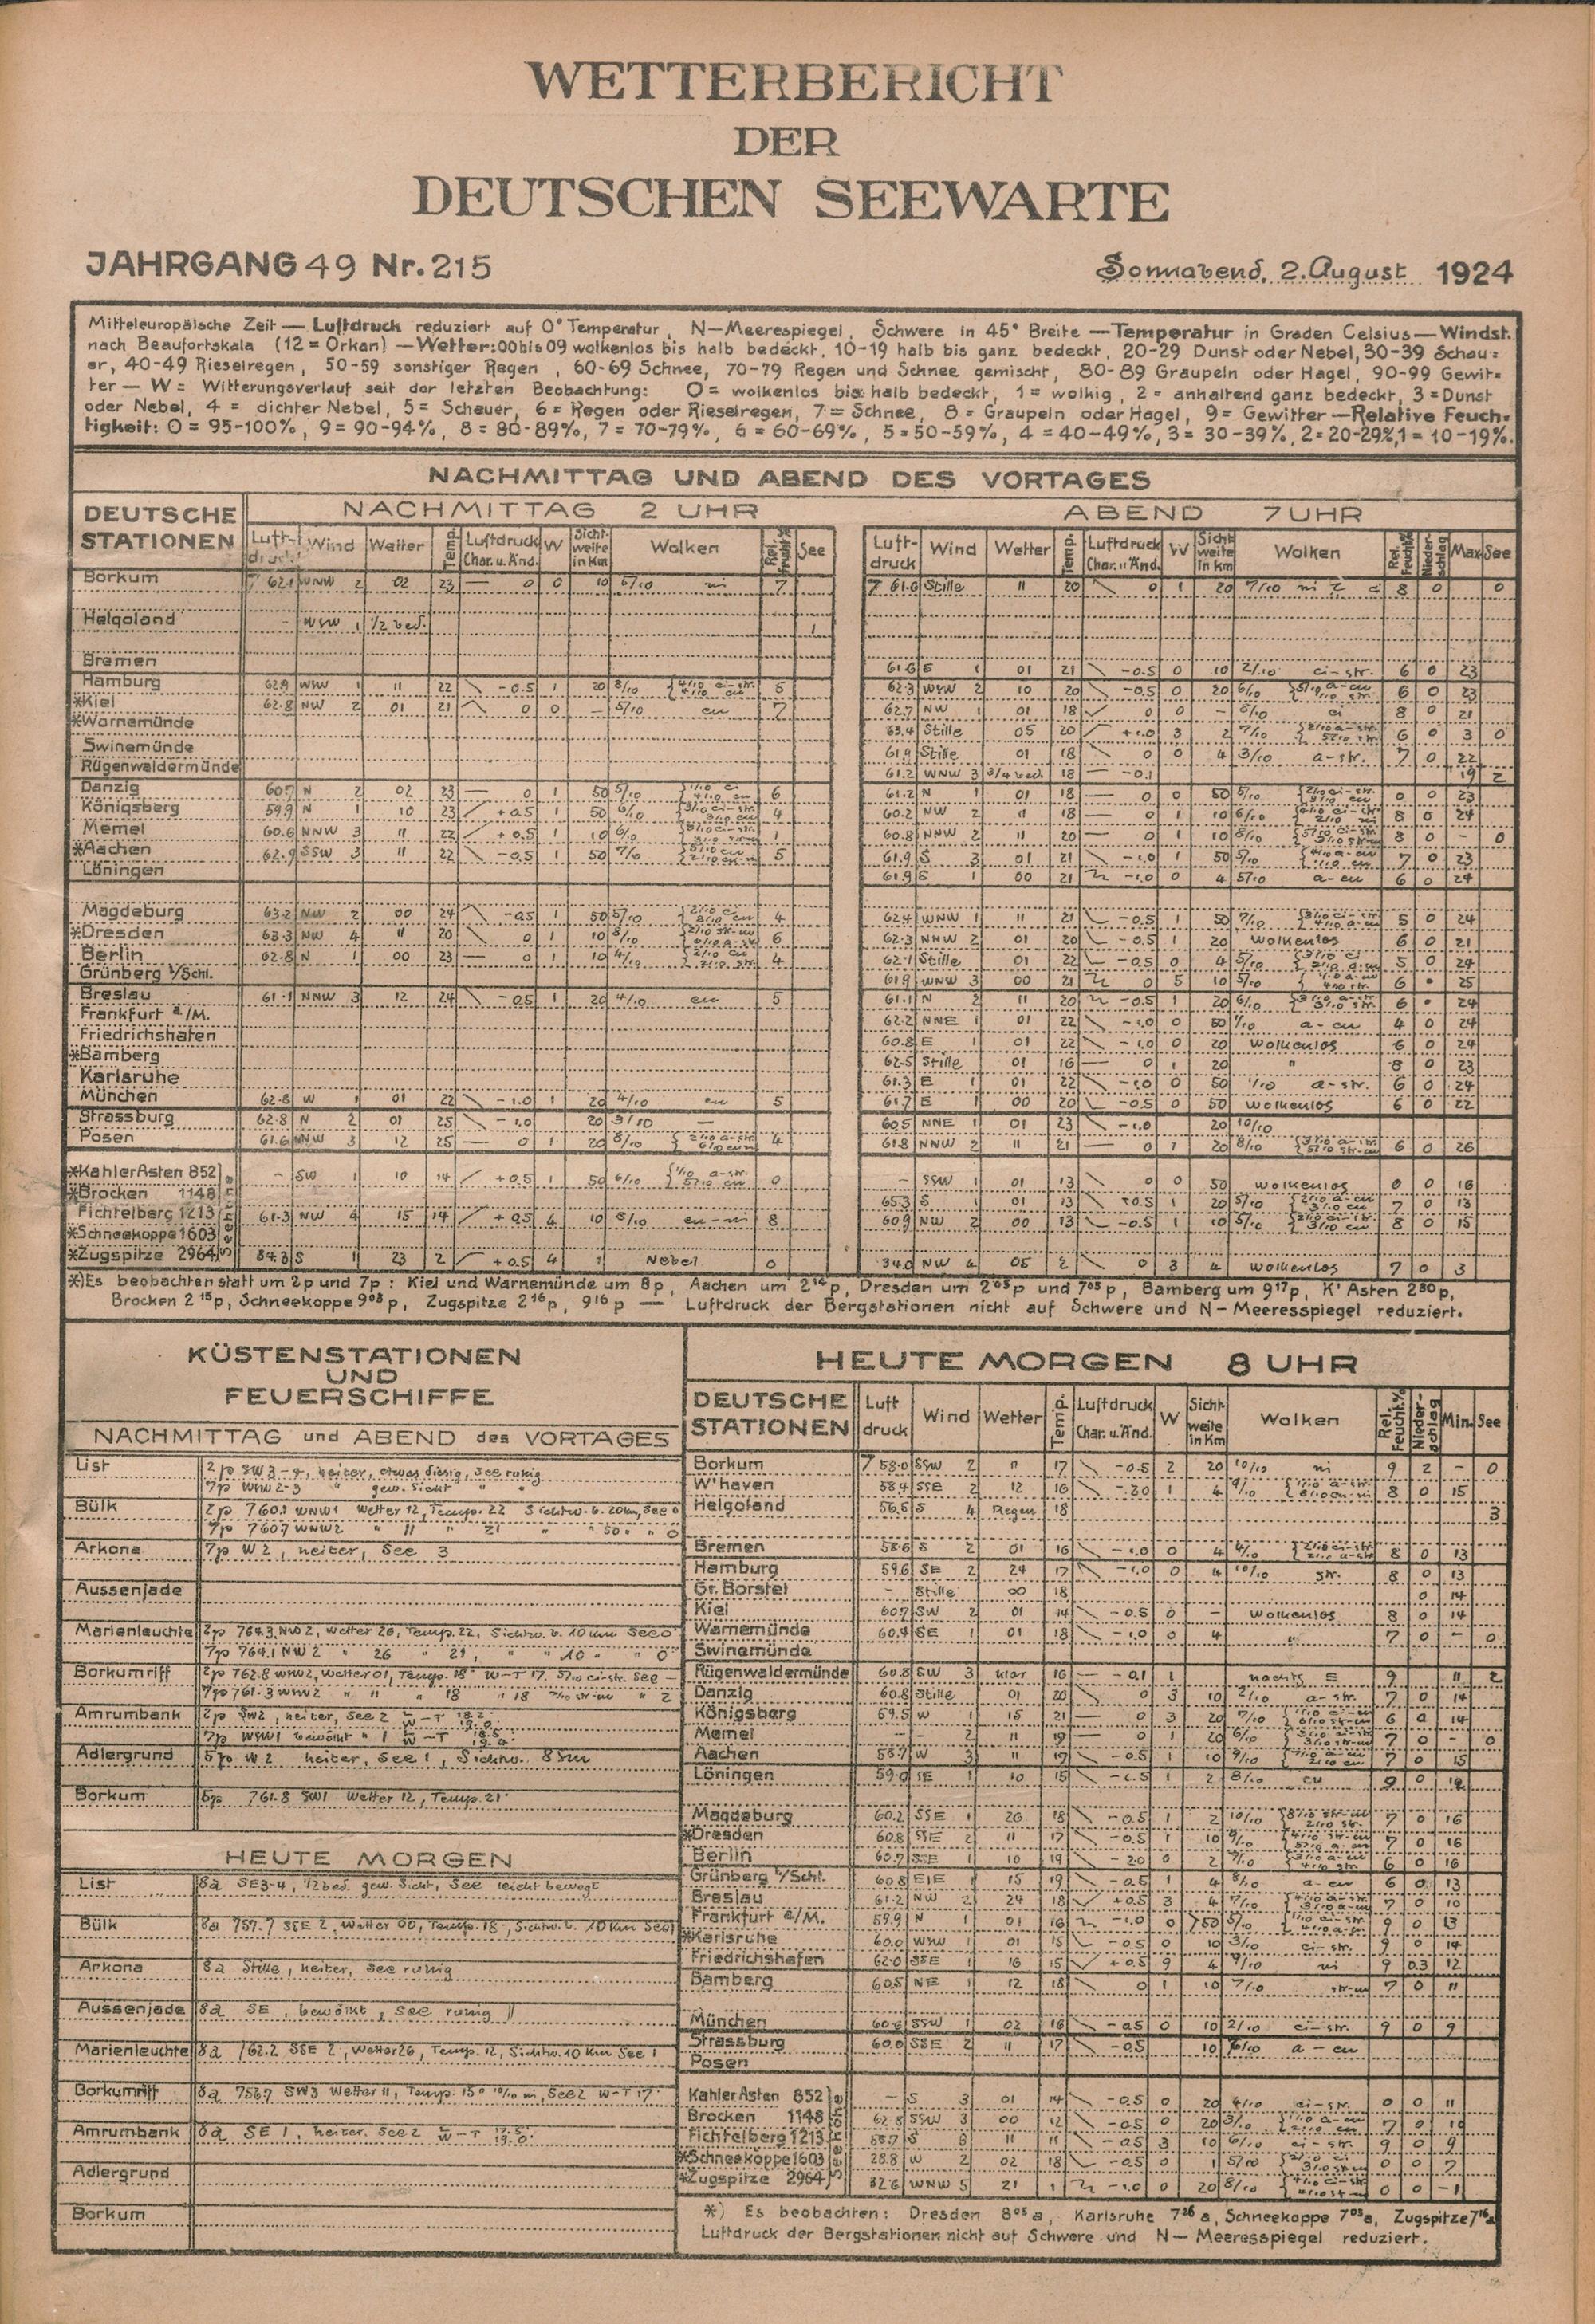 WETTERBERICHT
DER
DEUTSCHEN SEEWARTE
JAHRGANG 49 Nr. 215 Sonnabend, 2. August 1924
Mitteleuropäische Zeit — Luftdruck reduziert auf 0° Temperatur, N—Meerespiegel, Schwere in 45° Breite — Temperatur in Graden Celsius — Windst.
nach Beaufortskala (12 = Orkan) — Wetter: 00 bis 09 wolkenlos bis halb bedeckt, 10-19 halb bis ganz bedeckt, 20-29 Dunst oder Nebel, 30-39 Schau=
er, 40-49 Rieselregen, 50-59 sonstiger Regen, 60-69 Schnee, 70-79 Regen und Schnee gemischt, 80-89 Graupeln oder Hagel, 90-99 Gewit=
ter — W = Witterungsverlauf seit der letzten Beobachtung: 0 = wolkenlos bis halb bedeckt, 1 = wolkig, 2 = anhaltend ganz bedeckt, 3 = Dunst
oder Nebel, 4 = dichter Nebel, 5 = Schauer, 6 = Regen oder Rieselregen, 7 = Schnee, 8 = Graupeln oder Hagel, 9 = Gewitter — Relative Feuch=
tigkeit: 0 = 95-100%, 9 = 90-94%, 8 = 80-89%, 7 = 70-79%, 6 = 60-69%, 5 = 50-59%, 4 = 40-49%, 3 = 30-39%, 2 = 20-29%, 1 = 10-19%.
NACHMITTAG UND ABEND DES VORTAGES
DEUTSCHE STATIONEN
NACHMITTAG 2 UHR
Luft-druck Wind Wetter Temp. Luftdruck Char. u. Änd. W Sicht-weite in Km Wolken Rel. Feucht.% See
ABEND 7 UHR
Luft-druck Wind Wetter Temp. Luftdruck Char. u. Änd. W Sicht weite in km Wolken Rel. Feucht.% Nieder-schlag Max See
Borkum WNW 2 02 23 — 0 0 10 ni 7 7 61.0 Stille 11 20 0 1 20 7/10 8 0 0
Helgoland - WSW 1 1/2 bed. 1
Bremen 61.6 S 1 01 21 -0.5 0 10 2/10 ci-str. 6 0 23
Hamburg 62.9 WSW 1 11 22 -0.5 1 20 8/10 4/10 ci-str. 4/10 cu 5 62.3 WSW 2 10 20 -0.5 0 20 6/10 5/10 a-cu 6 0 23
*Kiel 62.8 NW 2 01 21 0 0 — 5/10 cu 7 62.7 NW 1 01 18 0 0 - ci 8 0 21
*Warnemünde 63.4 Stille 05 20 +1.0 3 2 7/10 2/10 a-str. 5/10 str. 6 0 3 0
Swinemünde 61.9 Stille 01 18 0 0 4 3/10 a-str. 7 0 22
Rügenwaldermünde 61.2 WNW 3 3/4 bed. 18 — -0.1 19 2
Danzig 60.7 N 2 02 23 — 0 1 50 5/10 6 61.2 N 1 01 18 — 0 0 50 5/10 0 0 23
Königsberg 59.9 N 1 10 23 +0.5 1 50 6/10 4 60.2 NW 2 11 18 — 0 1 10 6/10 8 0 24
Memel 60.6 NNW 3 11 22 +0.5 1 10 6/10 1 60.8 NNW 2 11 20 — 0 1 10 8/10 8 0 - 0
*Aachen 62.9 SSW 3 11 22 -0.5 1 50 7/10 5 61.9 S 3 01 21 -1.0 1 50 5/10 7 0 23
Löningen 61.9 S 1 00 21 -1.0 0 4 5/10 a-cu 6 0 24
Magdeburg 63.2 NW 2 00 24 -0.5 1 50 5/10 4 62.4 WNW 1 11 21 -0.5 1 50 7/10 5 0 24
*Dresden 63.3 NW 4 11 20 0 1 10 8/10 6 62.3 NNW 2 01 20 -0.5 1 20 wolkenlos 6 0 21
Berlin 62.8 N 1 00 23 — 0 1 10 4/10 4 62.1 Stille 01 22 -0.5 0 4 5/10 5 0 24
Grünberg i/Schl. 61.9 WNW 3 00 21 0 5 10 5/10 6 25
Breslau 61.1 NNW 3 12 24 -0.5 1 20 4/10 cu 5 61.1 N 2 11 20 -0.5 1 20 6/10 6 24
Frankfurt a/M. 62.2 NNE 1 01 22 -1.0 0 50 1/10 a-cu 4 0 24
Friedrichshafen 60.8 E 1 01 22 -1.0 0 20 wolkenlos 6 0 24
*Bamberg 62.5 Stille 01 16 — 0 1 20 " 8 0 23
Karlsruhe 61.3 E 1 01 22 -1.0 0 50 1/10 a-str. 6 0 24
München 62.8 W 1 01 22 -1.0 1 20 4/10 cu 5 61.7 E 1 00 20 -0.5 0 50 wolkenlos 6 0 22
Strassburg 62.8 N 2 01 25 -1.0 20 3/10 — 60.5 NNE 1 01 23 -1.0 20 10/10
Posen 61.6 NNW 3 12 25 — 0 1 20 8/10 4 61.8 NNW 2 11 21 — 0 1 20 8/10 6 0 26
*Kahler Asten 852 - SW 1 10 14 +0.5 1 50 6/10 1/10 a-str. 5/10 cu 0 - SSW 1 01 13 0 0 50 wolkenlos 0 0 16
*Brocken 1148 65.3 S 1 01 13 +0.5 1 20 5/10 7 0 13
Fichtelberg 1213 61.3 NW 4 15 14 +0.5 4 10 cu-ni 8 60.9 NW 2 00 13 -0.5 1 10 5/10 8 0 15
*Schneekoppe 1603
*Zugspitze 2964 S 1 23 2 +0.5 4 1 Nebel 0 34.0 NW 4 05 2 0 3 4 wolkenlos 7 0 3
Seehöhe
*) Es beobachten statt um 2p und 7p: Kiel und Warnemünde um 8p, Aachen um 2¹⁴p, Dresden um 2⁰⁵p und 7⁰⁵p, Bamberg um 9¹⁷p, K' Asten 2³⁰p,
Brocken 2¹⁵p, Schneekoppe 9⁰³p, Zugspitze 2¹⁶p, 9¹⁶p — Luftdruck der Bergstationen nicht auf Schwere und N—Meeresspiegel reduziert.
KÜSTENSTATIONEN
UND
FEUERSCHIFFE
NACHMITTAG und ABEND des VORTAGES
List 2p SW 3-4, heiter, etwas diesig, See ruhig
7p WSW 2-3 " gew. Sicht " "
Bülk 2p 760.1 WNW1 Wetter 12, Temp. 22 Sichtw. b. 20km, See 0
7p 760.7 WNW2 " 11 " 21 " " 50 " " 0
Arkona 7p W 2, heiter, See 3
Aussenjade
Marienleuchte 2p 764.3 NW 2, Wetter 26, Temp. 22, Sichtw. b. 10 km See 0
7p 764.1 NW 2 " 26 " 21, " " 10 " " 0
Borkumriff 2p 762.8 WNW2, Wetter 01, Temp. 18° W-T 17. 5/10 ci-str. See —
7p 761.3 WNW2 " 11 " 18 " 18 str-cu " 2
Amrumbank 2p SW2, heiter, See 2
7p WSW1 bewölkt " 1
Adlergrund 5p W 2 heiter, See 1, Sichtw. 8 Sm
Borkum 5p 761.8 SW1 Wetter 12, Temp. 21°
HEUTE MORGEN
List 8a SE 3-4, 1/2 bed. gew. Sicht, See leicht bewegt
Bülk 8a 757.7 SSE 2, Wetter 00, Temp. 18°, Sichtw. b. 10 Km See 1
Arkona 8a Stille, heiter, See ruhig
Aussenjade 8a SE, bewölkt, See ruhig
Marienleuchte 8a 762.2 SSE 2, Wetter 26, Temp. 12, Sichtw. 10 Km See 1
Borkumriff 8a 756.7 SW3 Wetter 11, Temp. 15° 10/10 ni, See 2 W-T 17°
Amrumbank 8a SE 1, heiter, See 2
Adlergrund
Borkum
HEUTE MORGEN 8 UHR
DEUTSCHE STATIONEN Luft druck Wind Wetter Temp. Luftdruck Char. u. Änd. W Sicht-weite in Km Wolken Rel. Feucht.% Nieder-schlag Min. See
Borkum 7 58.0 SSW 2 11 17 -0.5 2 20 10/10 ni 9 2 - 0
W'haven 58.4 SSE 2 12 16 1 4 9/10 8 0 15
Helgoland 56.5 S 4 Regen 18 3
Bremen 58.6 S 2 01 16 -1.0 0 4 4/10 8 0 13
Hamburg 59.6 SE 2 24 17 -1.0 0 4 10/10 str. 8 0 13
Gr. Borstel - Stille ∞ 18 0 14
Kiel 60.7 SW 2 01 14 -0.5 0 - wolkenlos 8 0 14
Warnemünde 60.4 SE 1 01 18 -1.0 0 4 " 7 0 - 0
Swinemünde
Rügenwaldermünde 60.8 SW 3 klar 16 — -0.1 1 nachts E 9 11 2
Danzig 60.8 Stille 01 20 0 3 10 2/10 a-str. 7 0 14
Königsberg 59.5 W 1 15 21 — 0 3 20 7/10 6 0 14
Memel - - 2 11 19 — 0 1 20 6/10 7 0 - 0
Aachen 58.7 W 3 11 17 -0.5 1 10 7 0 15
Löningen 59.0 SE 1 10 15 1 2 8/10 cu 9 0 12
Magdeburg 60.2 SSE 1 26 18 -0.5 1 2 10/10 8/10 str-cu 2/10 str. 7 0 16
*Dresden 60.8 SSE 2 11 17 -0.5 1 10 7 0 16
Berlin 60.7 SSE 1 10 19 -2.0 0 2 6 0 16
Grünberg i/Schl. 60.8 ESE 1 15 19 -0.5 1 4 8/10 a-cu 6 0 13
Breslau 61.2 NW 2 24 18 +0.5 3 4 7/10 7 0 10
Frankfurt a/M. 59.9 N 1 01 16 -1.0 0 >50 5/10 9 0 13
*Karlsruhe 60.0 WSW 1 01 15 -0.5 0 10 3/10 ci-str. 9 0 14
Friedrichshafen 62.0 SSE 1 16 15 +0.5 9 4 9/10 ni 9 0.3 12
Bamberg 60.5 NE 1 12 18 0 1 10 7/10 str-cu 7 0 11
München SSW 1 02 16 -0.5 0 10 2/10 ci-str. 9 0 9
Strassburg 60.0 SSE 2 11 17 -0.5 10 a-cu
Posen
Kahler Asten 852 - S 3 01 14 -0.5 0 20 4/10 ci-str. 0 0 11
Brocken 1148 62.8 SSW 3 00 12 -0.5 0 20 3/10 7 0 10
Fichtelberg 1213 S 11 11 -0.5 3 10 6/10 ci-str. 9 0 9
*Schneekoppe 1603 28.8 W 2 02 18 -0.5 0 1 5/10 0 0 7
*Zugspitze 2964 32.6 WNW 5 21 1 -1.0 0 20 8/10 0 0 -1
Seehöhe
*) Es beobachten: Dresden 8⁰⁵a, Karlsruhe 7²⁶a, Schneekoppe 7⁰³a, Zugspitze 7¹⁶a
Luftdruck der Bergstationen nicht auf Schwere und N—Meeresspiegel reduziert.